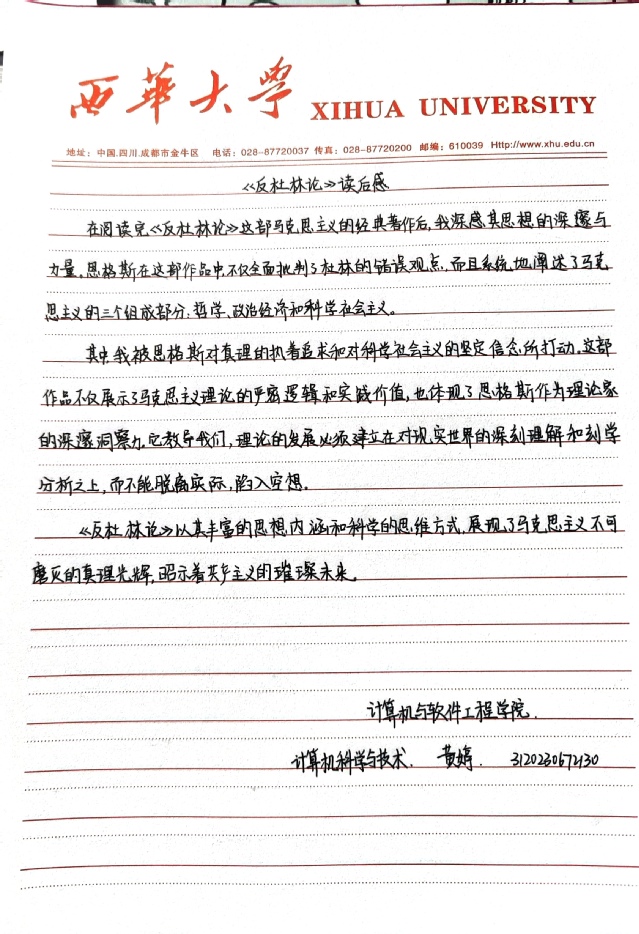 西华大学 XIHUA UNIVERSITY
地址：中国.四川.成都市金牛区 电话：028-87720037 传真：028-87720200 邮编：610039 Http://www.xhu.edu.cn
《反杜林论》读后感
在阅读完《反杜林论》这部马克思主义的经典著作后，我深感其思想的深邃与
力量。恩格斯在这部作品中不仅全面批判了杜林的错误观点，而且系统地阐述了马克
思主义的三个组成部分：哲学、政治经济和科学社会主义。
其中我被恩格斯对真理的执着追求和对科学社会主义的坚定信念所打动。这部
作品不仅展示了马克思主义理论的严密逻辑和实践价值，也体现了恩格斯作为理论家
的深邃洞察力。它教导我们，理论的发展必须建立在对现实世界的深刻理解和刻学
分析之上，而不能脱离实际，陷入空想。
《反杜林论》以其丰富的思想内涵和科学的思维方式，展现了马克思主义不可
磨灭的真理光辉，昭示着共产主义的璀璨未来。
计算机与软件工程学院.
计算机科学与技术. 黄婷. 3120230672130